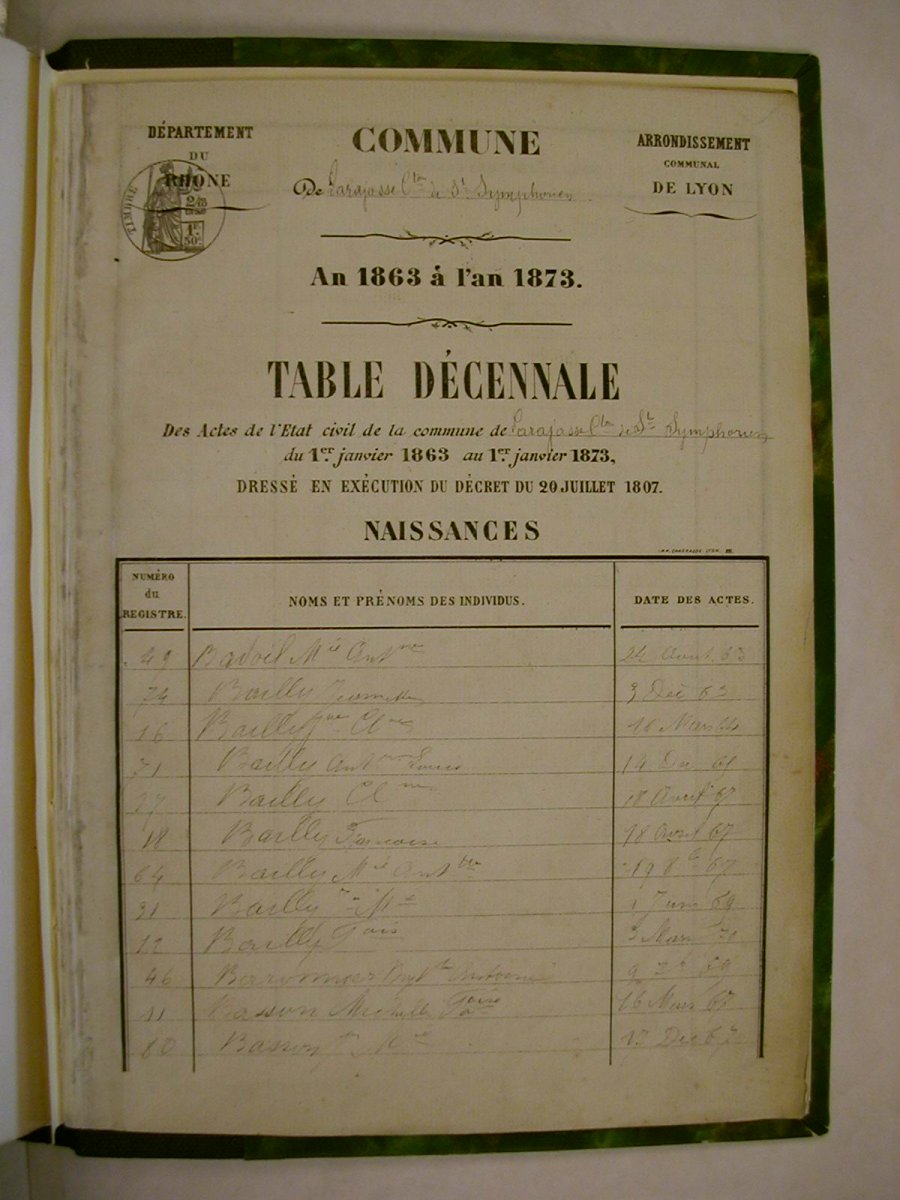 DÉPARTEMENT
DU
RHÔNE
TIMBRE
2/10
1F.
50C.
COMMUNE
De Larajasse Cton de St Symphorien
ARRONDISSEMENT
COMMUNAL
DE LYON
An 1863 à l'an 1873.
TABLE DÉCENNALE
Des Actes de l'Etat civil de la commune de Larajasse Cton de St Symphorien
du 1er janvier 1863 au 1er janvier 1873,
DRESSÉ EN EXÉCUTION DU DÉCRET DU 20 JUILLET 1807.
NAISSANCES
NUMÉRO du REGISTRE.
NOMS ET PRÉNOMS DES INDIVIDUS.
DATE DES ACTES.
49 Badoil Mie Antne 24 63
74 Bailly Jeannette 3 Déc 63
16 Bailly Clne 16 Mars
71 Bailly Antne Louis 19 Déc
27 Bailly Cl 18 Avril 67
18 Bailly Francoise 18 Avril 67
64 Bailly Mie Antne 19 8bre 67
31 Bailly 1 Juin 69
12 Bailly Fois 3 Mars 70
46 9 69
11 Michelle 16 Mars 67
80 Basson 17 Déc 67